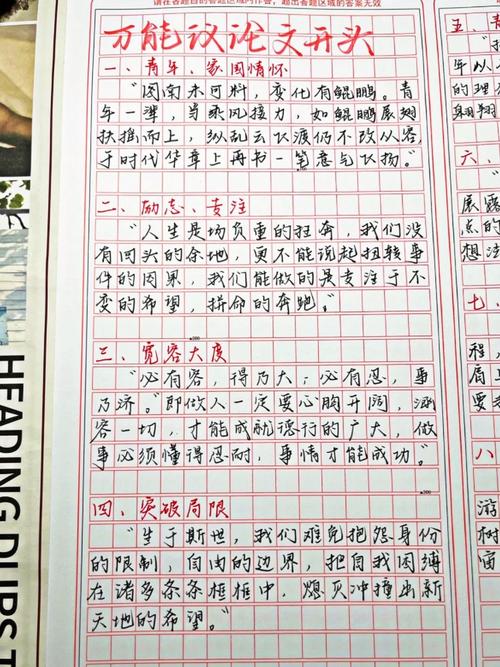 请在各题目的答题区域内作答,超出答题区域的答案无效
万能议论文开头
一、青年、家国情怀
“图南未可料,变化有鲲鹏。青
年一辈,当乘风接力,如鲲鹏展翅
扶摇而上,纵乱云飞渡仍不改从容,
于时代华章上再书一笔意气飞扬。”
二、励志、专注
“人生是场负重的狂奔,我们没
有回头的余地,更不能说起扭转事
件的因果,我们能做的是专注于不
变的希望,拼命的奔跑。”
三、宽容大度
“必有容,得乃大;必有忍,事
乃济。”即做人一定要心胸开阔,涵
容一切,才能成就德行的广大,做
事必须懂得忍耐,事情才能成功。”
四、突破局限
“生于斯世,我们难免抱怨身份
的限制,自由的边界,把自我困缚
在诸多条条框框中,熄灭冲撞出新
天地的希望。”
▲200
▲300
五、青
年以
的理
翱翔
六、
展露
点的
想注
七、
程,
肩
与
八
游
树
庙
HEADING DUPS T